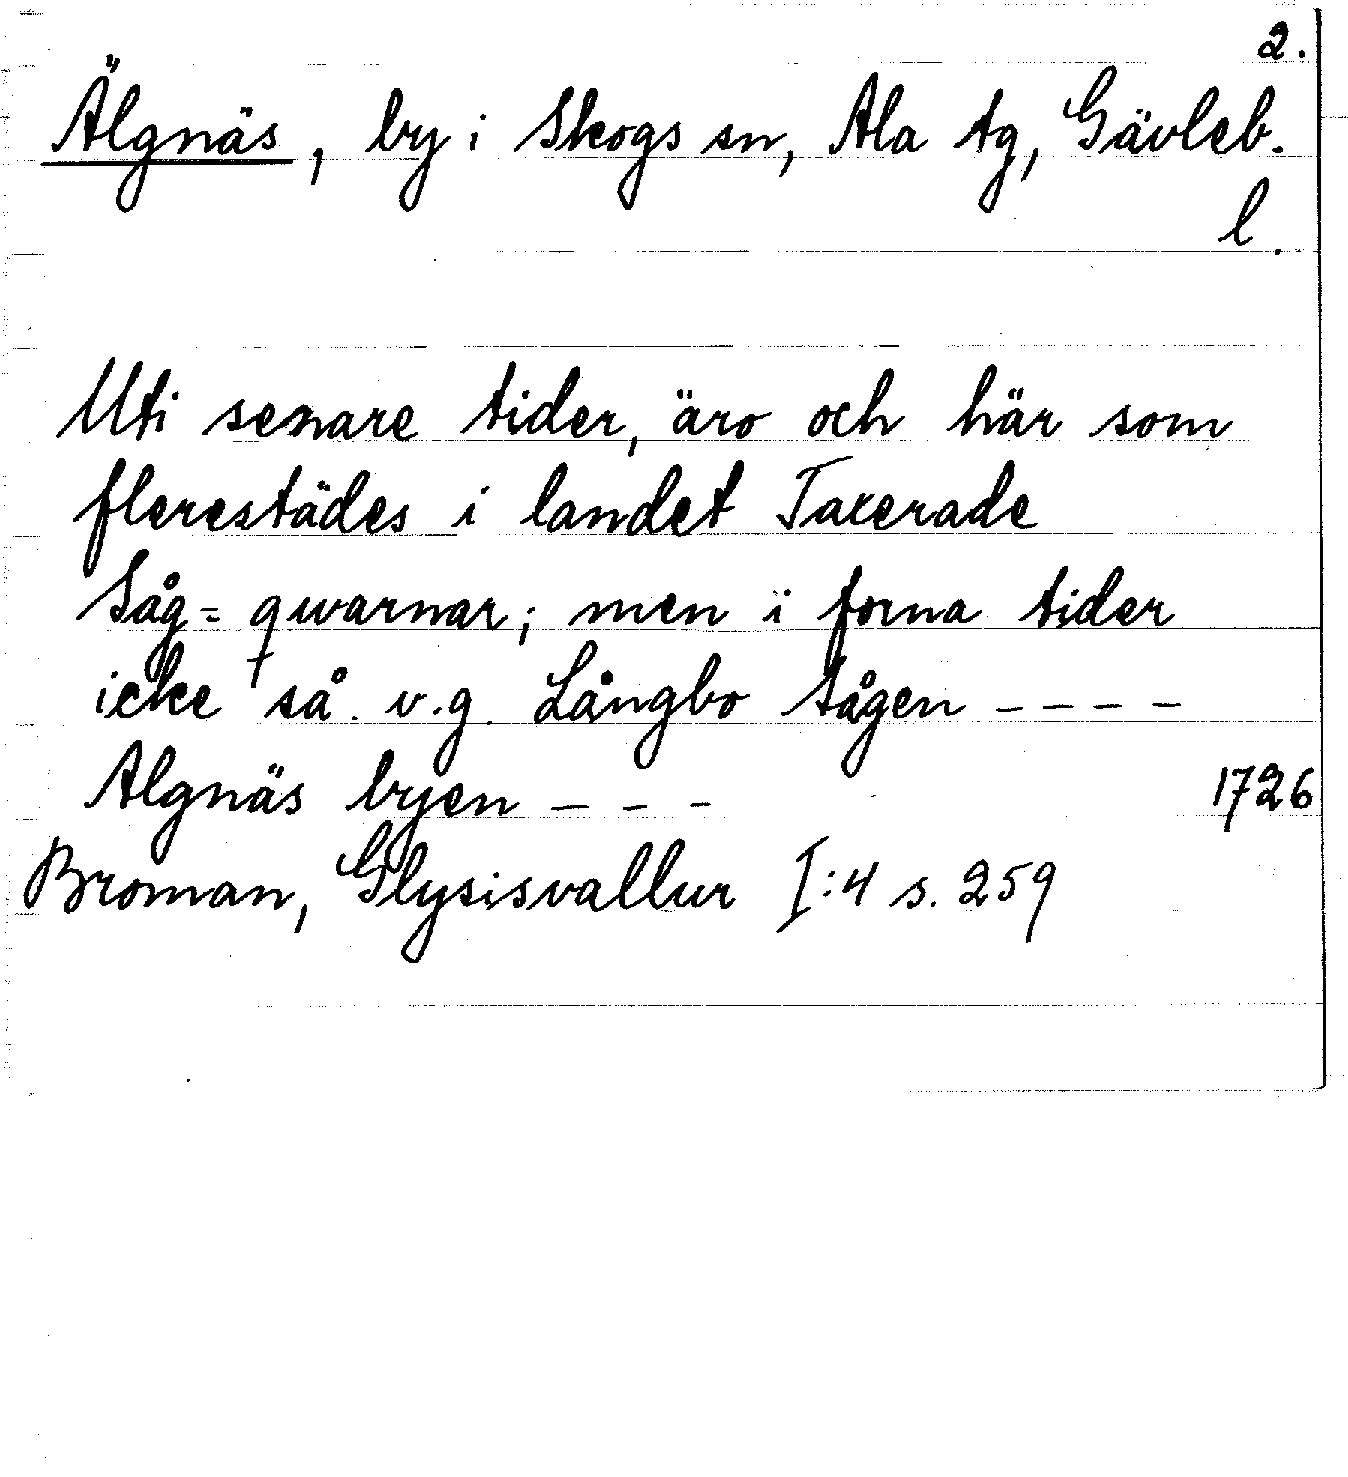 2.
Älgnäs, by i Skogs sn, Ala tg, Gävleb.
l.
Uti senare tider, äro och här som
flerestädes i landet Taxerade
Såg= qwarnar; men i forna tider
icke så. v.g. Långbo sågen - - - -
Algnäs byen - - - 1726
Broman, Glysisvallur I:4 s. 259